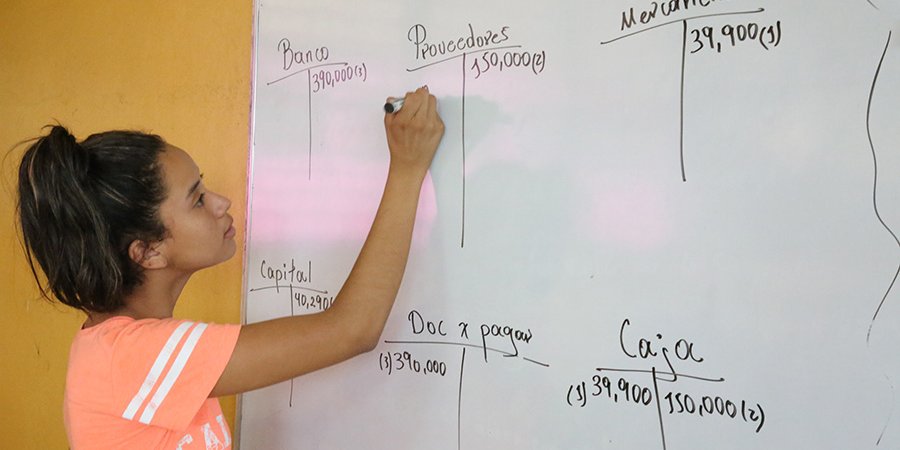 Banco
390,000(3)
Proveedores
150,000(2)
39,900(1)
Capital
40,290
Doc x pagar
(3)390,000
Caja
(1) 39,900
150,000(2)
CA